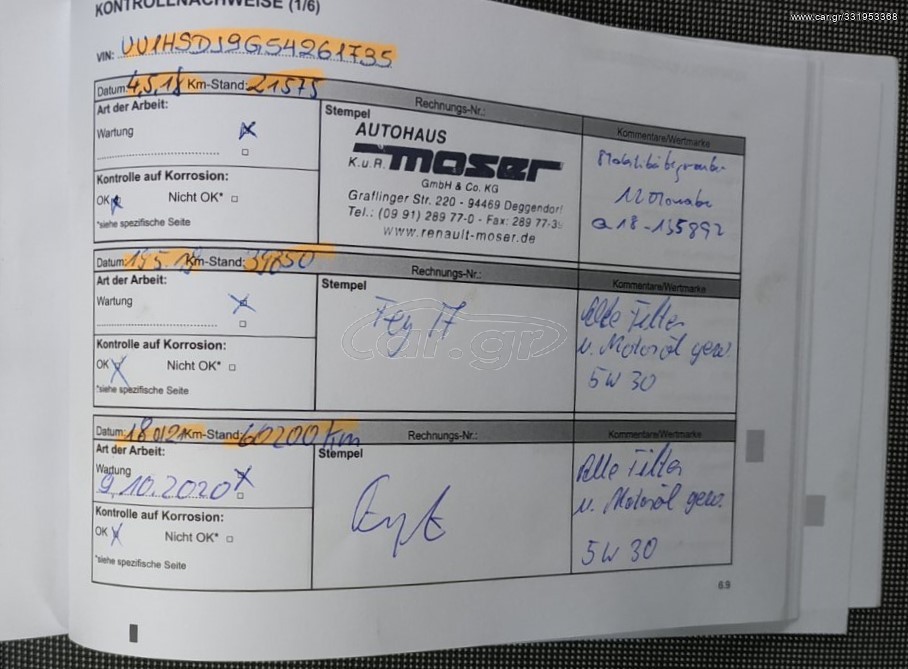 www.car.gr/331953368
KONTROLLNACHWEISE (1/6)
VIN: UU1HSDJ9G54261735
Datum: 4,5,18 Km-Stand: 21575
Rechnungs-Nr.:
Kommentare/Wertmarke
Art der Arbeit:
Wartung
Kontrolle auf Korrosion:
OK Nicht OK*
*siehe spezifische Seite
Stempel
AUTOHAUS
K.u.R. moser
GmbH & Co. KG
Graflinger Str. 220 - 94469 Deggendorf
Tel.: (09 91) 289 77-0 - Fax: 289 77-3
www.renault-moser.de
12 Monate
a 18-135892
Datum: Km-Stand:
Rechnungs-Nr.:
Kommentare/Wertmarke
Art der Arbeit:
Wartung
Kontrolle auf Korrosion:
OK Nicht OK*
*siehe spezifische Seite
Stempel
Alle Filter
u. Motoröl gew.
5W 30
car.gr
Datum: Km-Stand: 60200 km
Rechnungs-Nr.:
Kommentare/Wertmarke
Art der Arbeit:
Wartung
9,10.2020
Kontrolle auf Korrosion:
OK Nicht OK*
*siehe spezifische Seite
Stempel
Alle Filter
u. Motoröl gew.
5W 30
6.9